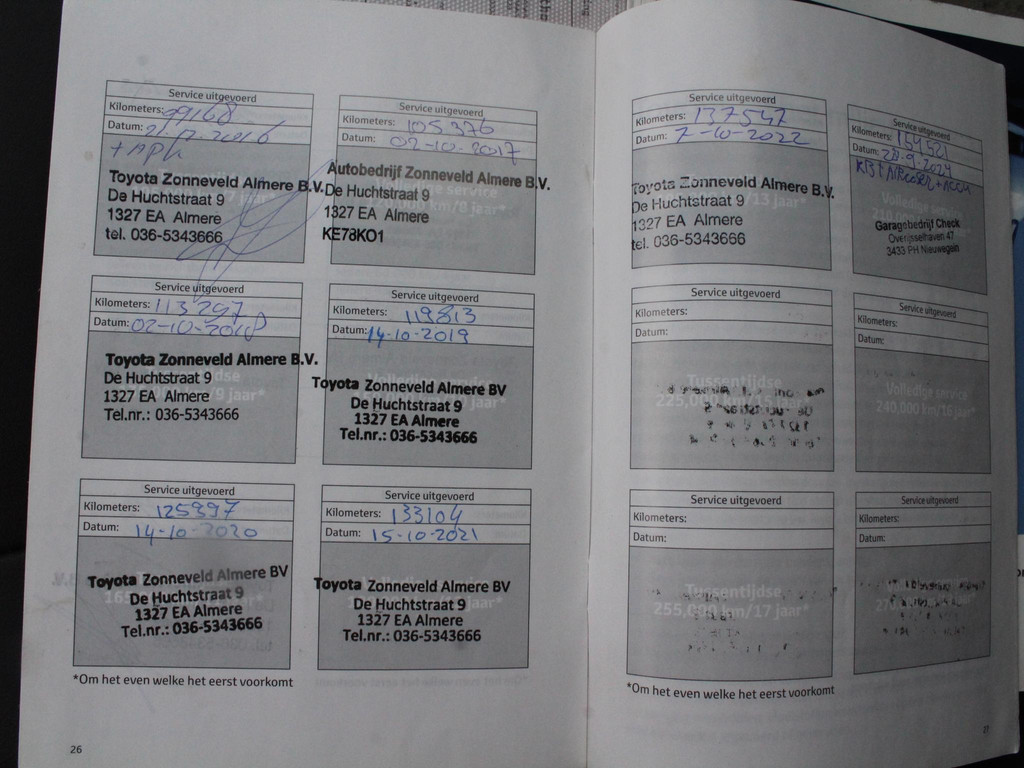 Service uitgevoerd
Kilometers: 99168
Datum: 21-12-2016
+ APK
Toyota Zonneveld Almere B.V.
De Huchtstraat 9
1327 EA Almere
tel. 036-5343666
Service uitgevoerd
Kilometers: 105376
Datum: 02-10-2017
Autobedrijf Zonneveld Almere B.V.
De Huchtstraat 9
1327 EA Almere
KE78KO1
Service uitgevoerd
Kilometers: 113297
Datum: 02-10-2018
Toyota Zonneveld Almere B.V.
De Huchtstraat 9
1327 EA Almere
Tel.nr.: 036-5343666
Service uitgevoerd
Kilometers: 119813
Datum: 14-10-2019
Toyota Zonneveld Almere BV
De Huchtstraat 9
1327 EA Almere
Tel.nr.: 036-5343666
Service uitgevoerd
Kilometers: 125897
Datum: 14-10-2020
Toyota Zonneveld Almere BV
De Huchtstraat 9
1327 EA Almere
Tel.nr.: 036-5343666
Service uitgevoerd
Kilometers: 133104
Datum: 15-10-2021
Toyota Zonneveld Almere BV
De Huchtstraat 9
1327 EA Almere
Tel.nr.: 036-5343666
*Om het even welke het eerst voorkomt
26
Service uitgevoerd
Kilometers: 137547
Datum: 7-10-2022
/13 jaar*
Toyota Zonneveld Almere B.V.
De Huchtstraat 9
1327 EA Almere
tel. 036-5343666
Service uitgevoerd
Kilometers: 154521
Datum: 20-9-2024
Volledige service
Garagebedrijf Check
Overijsselhaven 47
3433 PH Nieuwegein
Service uitgevoerd
Kilometers:
Datum:
Tussentijdse
225,000 km/15 jaar*
Service uitgevoerd
Kilometers:
Datum:
Volledige service
240,000 km/16 jaar*
Service uitgevoerd
Kilometers:
Datum:
Tussentijdse
255,000 km/17 jaar*
Service uitgevoerd
Kilometers:
Datum:
*Om het even welke het eerst voorkomt
27